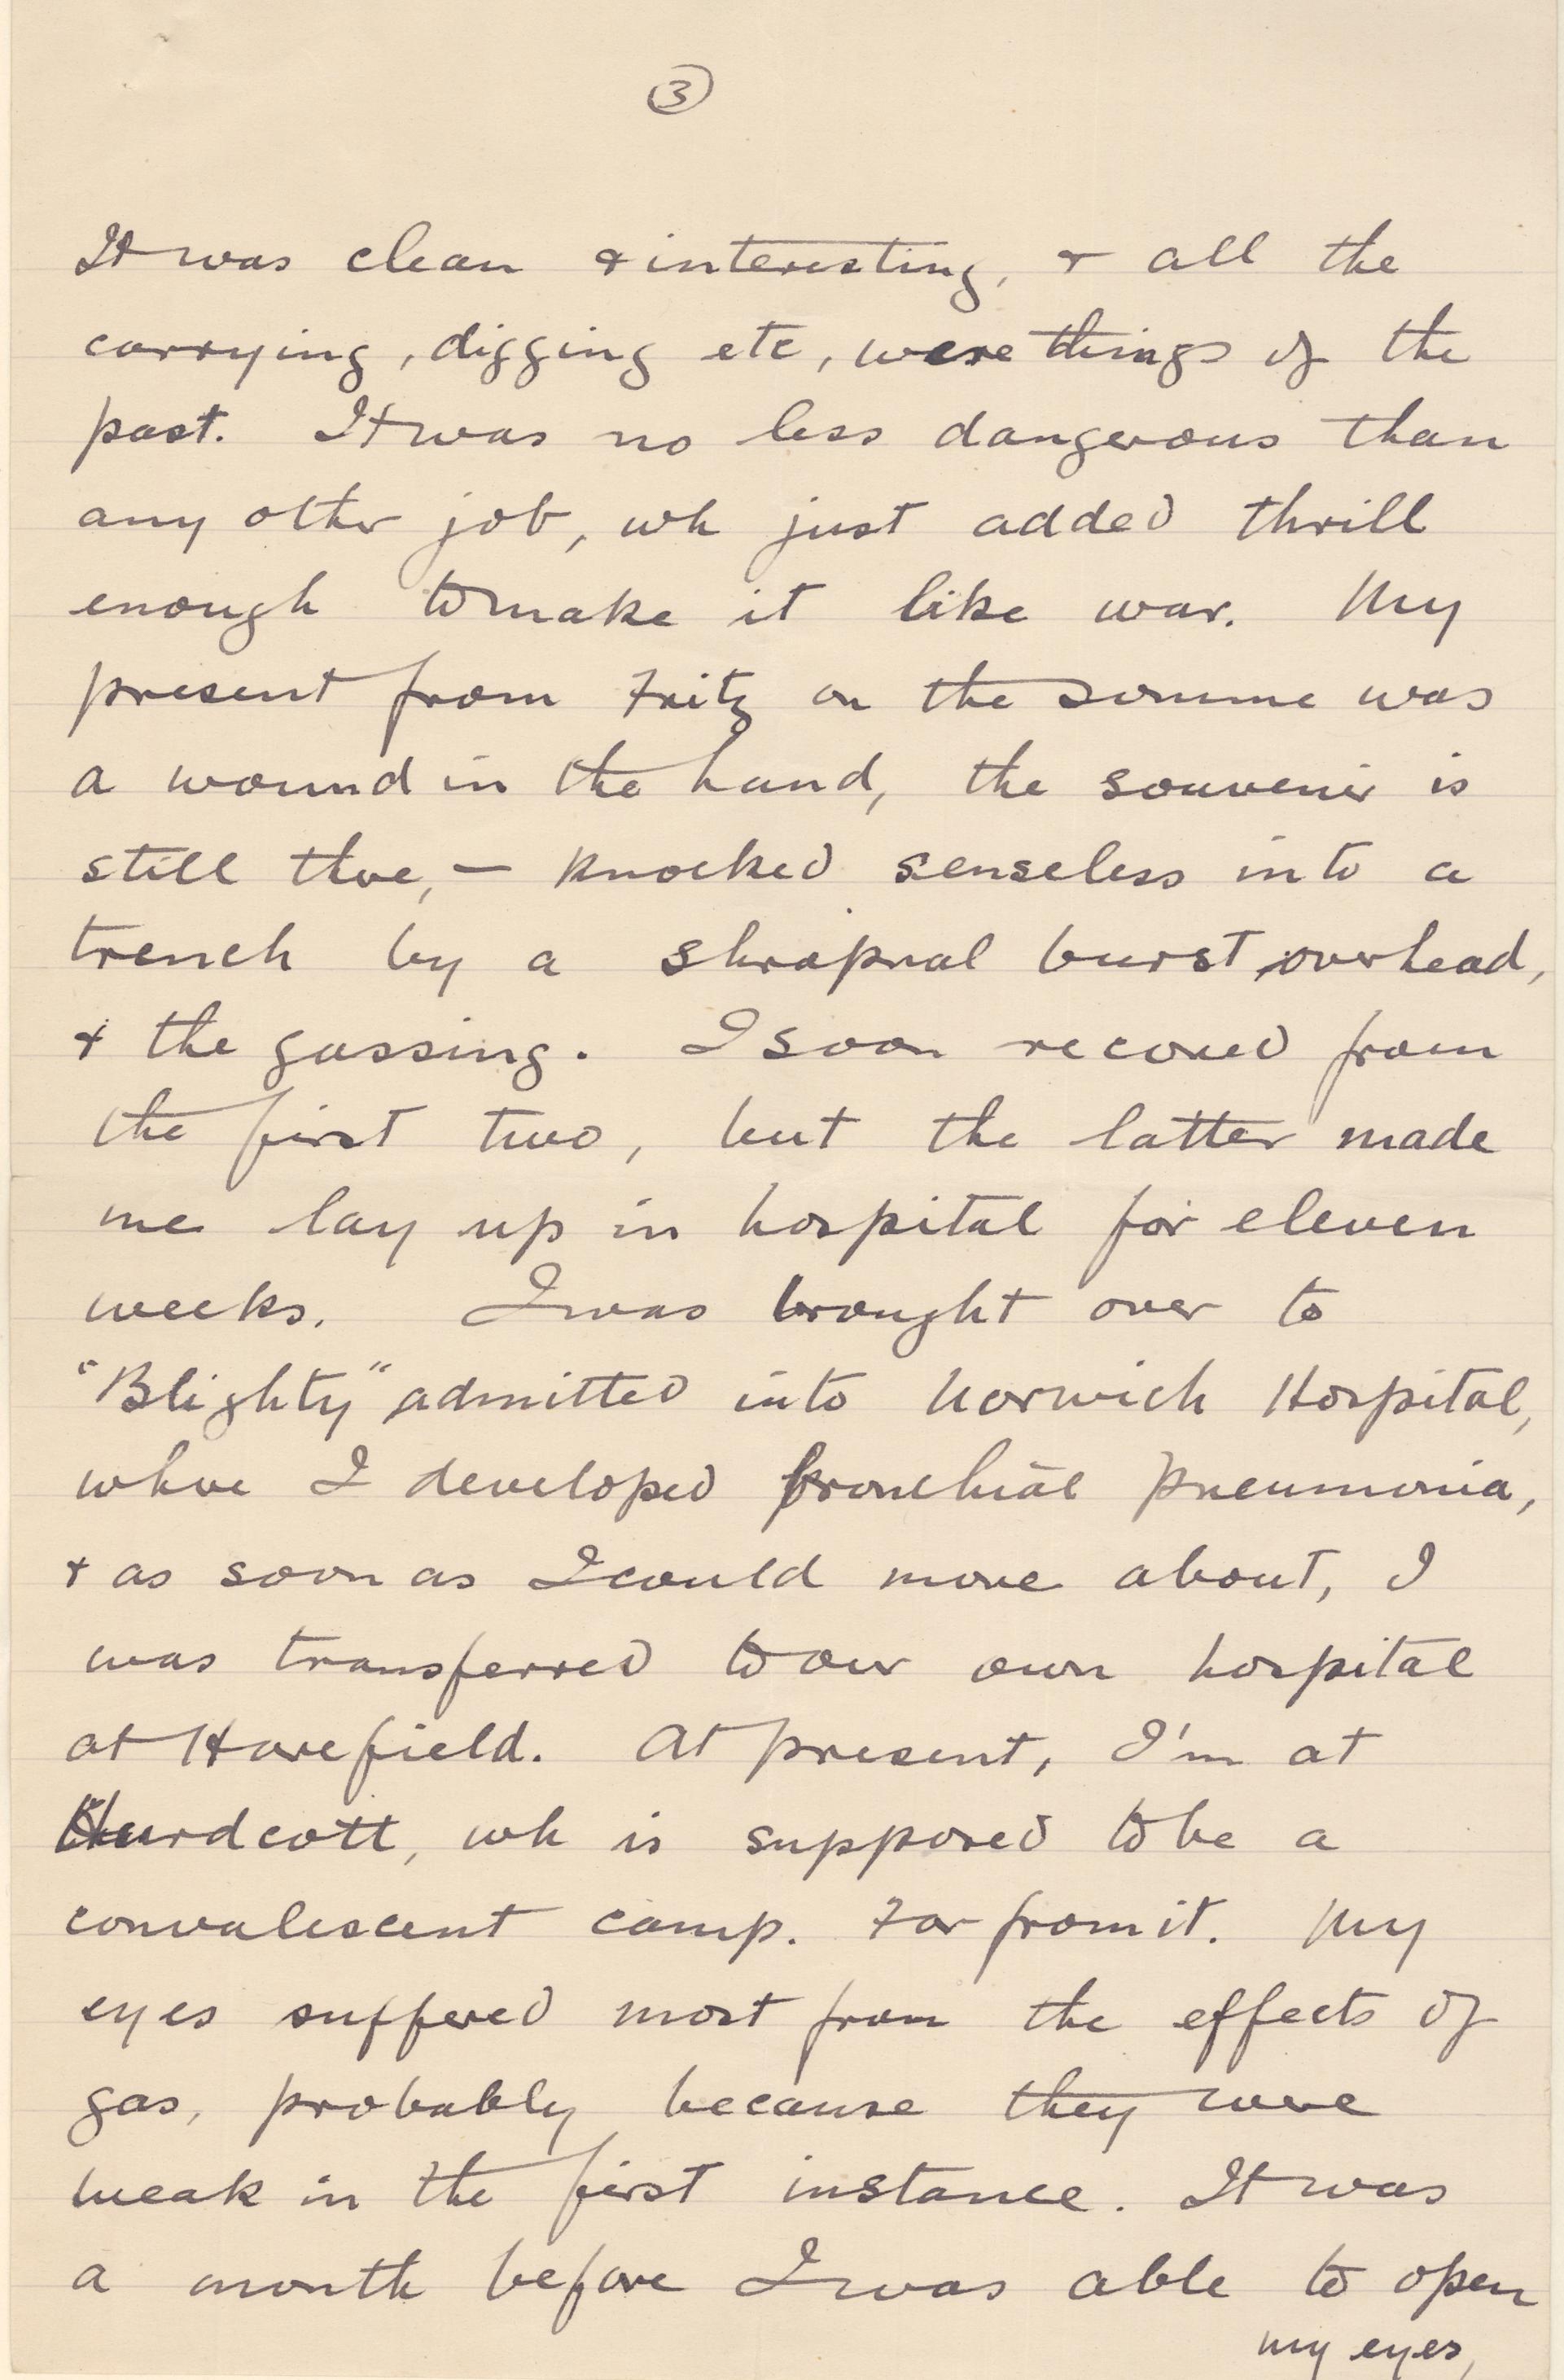 3
It was clean & interesting, & all the
carrying, digging etc, were things of the
past. It was no less dangerous than
any other job, wh just added thrill
enough to make it like war. My
present from Fritz on the Somme was
a wound in the hand, the souvenir is
still there, — knocked senseless into a
trench by a shrapnal burst overhead,
& the gassing. I soon recovred from
the first two, but the latter made
me lay up in hospital for eleven
weeks. I was brought over to
"Blighty" admitted into Norwich Hospital,
where I developed bronchial pneumonia,
& as soon as I could move about, I
was transferred to our own hospital
at Harefield. At present, I'm at
Hurdcott, wh is supposed to be a
convalescent camp. Far from it. My
eyes suffered most from the effects of
gas, probably because they were
weak in the first instance. It was
a month before I was able to open
my eyes,